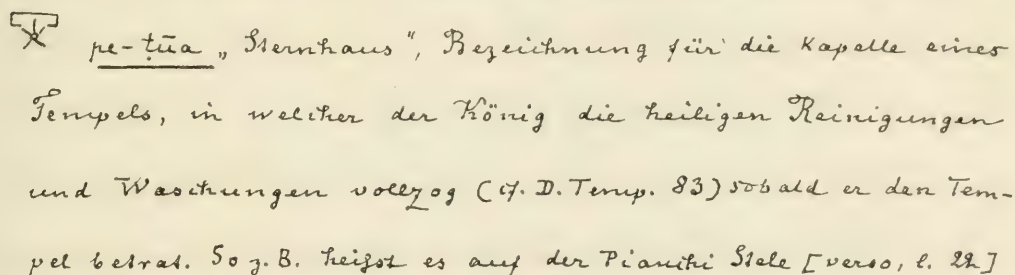 pe-ṭūa „Sternhaus", Bezeichnung für die Kapelle eines
Tempels, in welcher der König die heiligen Reinigungen
und Waschungen vollzog (cf. D. Temp. 83) sobald er den Tem-
pel betrat. So z. B. heißt es auf der Pianchi Stele [verso, l.